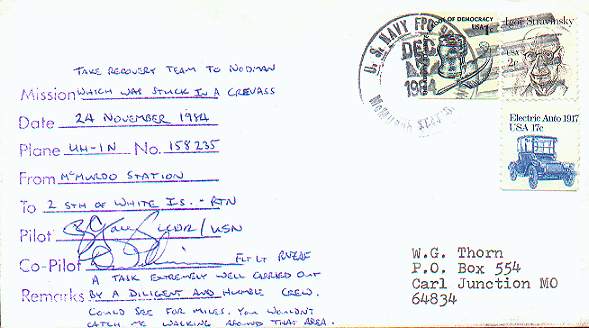 TAKE RECOVERY TEAM TO NODMAN
Mission WHICH WAS STUCK IN A CREVASS
Date 24 NOVEMBER 1984
Plane UH-1N No. 158235
From McMURDO STATION
To 2 STH OF WHITE IS. - RTN
Pilot LCDR/USN
Co-Pilot FLT LT RNZAF
A TASK EXTREMELY WELL CARRIED OUT
Remarks BY A DILIGENT AND HUMBLE CREW.
COULD SEE FOR MILES. YOU WOULDN'T
CATCH ME WALKING AROUND THAT AREA.
U. S. NAVY FPO
DEC
1984
McMurdo STATION
OF DEMOCRACY
USA 1c
Igor Stravinsky
USA
2c
Electric Auto 1917
USA 17c
W.G. Thorn
P.O. Box 554
Carl Junction MO
64834